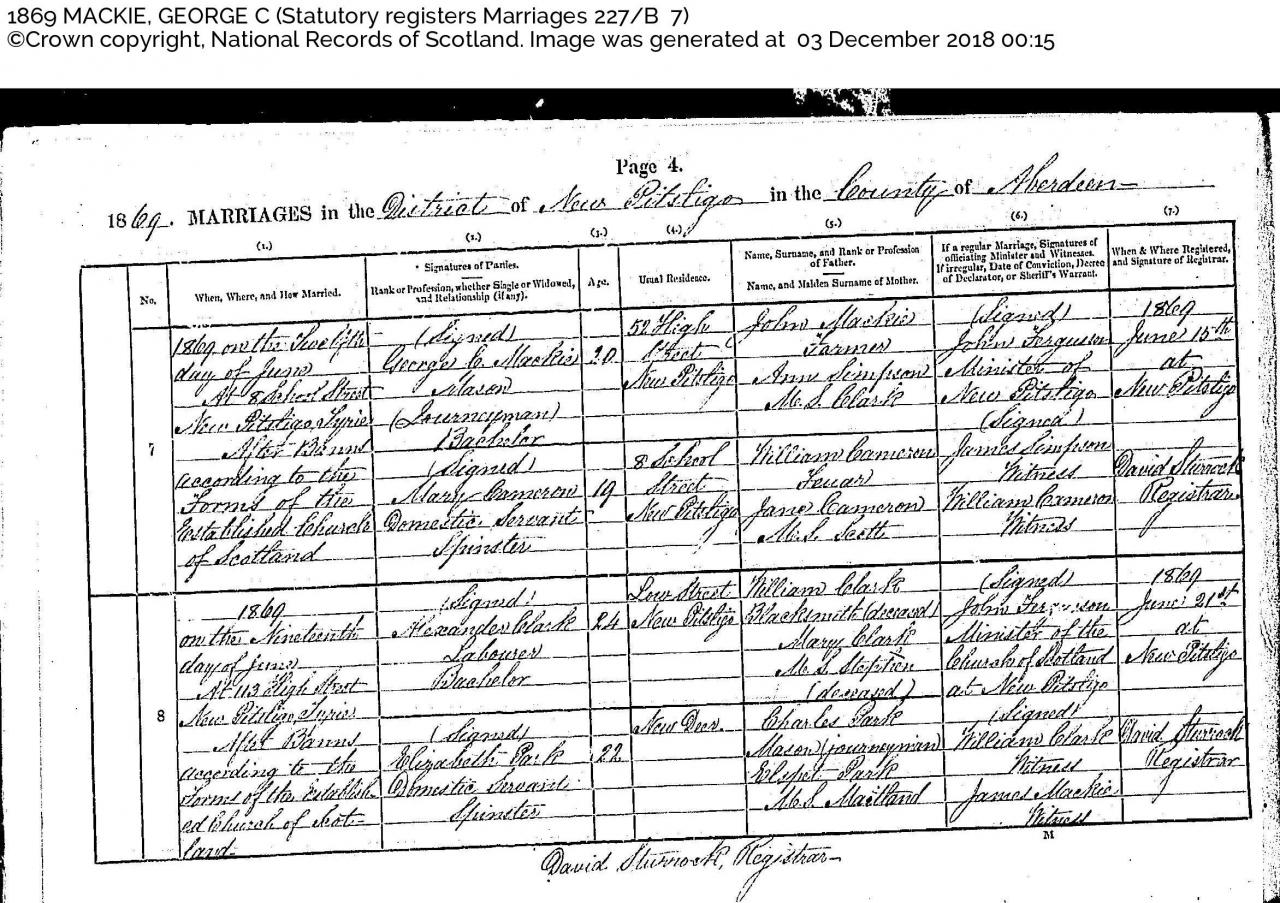 1869 MACKIE, GEORGE C (Statutory registers Marriages 227/B 7)
©Crown copyright, National Records of Scotland. Image was generated at 03 December 2018 00:15
Page 4.
1869. MARRIAGES in the District of New Pitsligo in the County of Aberdeen
(1.) (2.) (3.) (4.) (5.) (6.) (7.)
No.
When, Where, and How Married.
Signatures of Parties.
Rank or Profession, whether Single or Widowed,
and Relationship (if any).
Age.
Usual Residence.
Name, Surname, and Rank or Profession
of Father.
Name, and Maiden Surname of Mother.
If a regular Marriage, Signatures of
officiating Minister and Witnesses.
If irregular, Date of Conviction, Decree
of Declarator, or Sheriff's Warrant.
When & Where Registered,
and Signature of Registrar.
7
1869 on the Twelfth
day of June
At 8 School Street
New Pitsligo, Tyrie
After Banns
according to the
Forms of the
Established Church
of Scotland
(Signed)
George C. Mackie
Mason
(Journeyman)
Bachelor
(Signed)
Mary Cameron
Domestic Servant
Spinster
20
19
52 High
Street
New Pitsligo
8 School
Street
New Pitsligo
John Mackie
Farmer
Ann Simpson
M.S. Clark
William Cameron
Feuar
Jane Cameron
M.S. Scott
(Signed)
John Ferguson
Minister of
New Pitsligo
(Signed)
James Simpson
Witness
William Cameron
Witness
1869
June 15th
at
New Pitsligo
David Sturrock
Registrar
8
1869
on the Nineteenth
day of June
At 113 High Street
New Pitsligo, Tyrie
After Banns
according to the
Forms of the Establish
ed Church of Scot-
land
(Signed)
Alexander Clark
Labourer
Bachelor
(Signed)
Elizabeth Park
Domestic Servant
Spinster
24
22
Low Street
New Pitsligo
New Deer
William Clark
Blacksmith (deceased)
Mary Clark
M.S. Stephen
(deceased)
Charles Park
Mason (journeyman)
Elspet Park
M.S. Maitland
(Signed)
John Ferguson
Minister of the
Church of Scotland
at New Pitsligo
(Signed)
William Clark
Witness
James Mackie
Witness
1869
June 21st
at
New Pitsligo
David Sturrock
Registrar
M
David Sturrock, Registrar